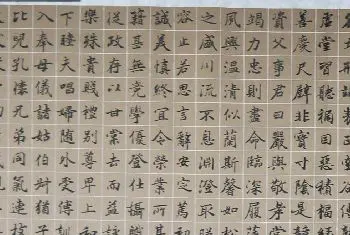 虛堂習聽禍因惡積福
善慶尺璧非寶寸陰是
資父事君曰嚴與敬孝
竭力忠則盡命臨深履
夙興溫凊似蘭斯馨如
之盛川流不息淵澄取
容止若思言辭安定篤
誠美慎終宜令榮業所
籍甚無竟學優登仕攝
從政存以甘棠去而益
樂殊貴賤禮別尊卑上
下睦夫唱婦隨外受傅
入奉母儀諸姑伯叔猶
比兒孔懷兄弟同氣連